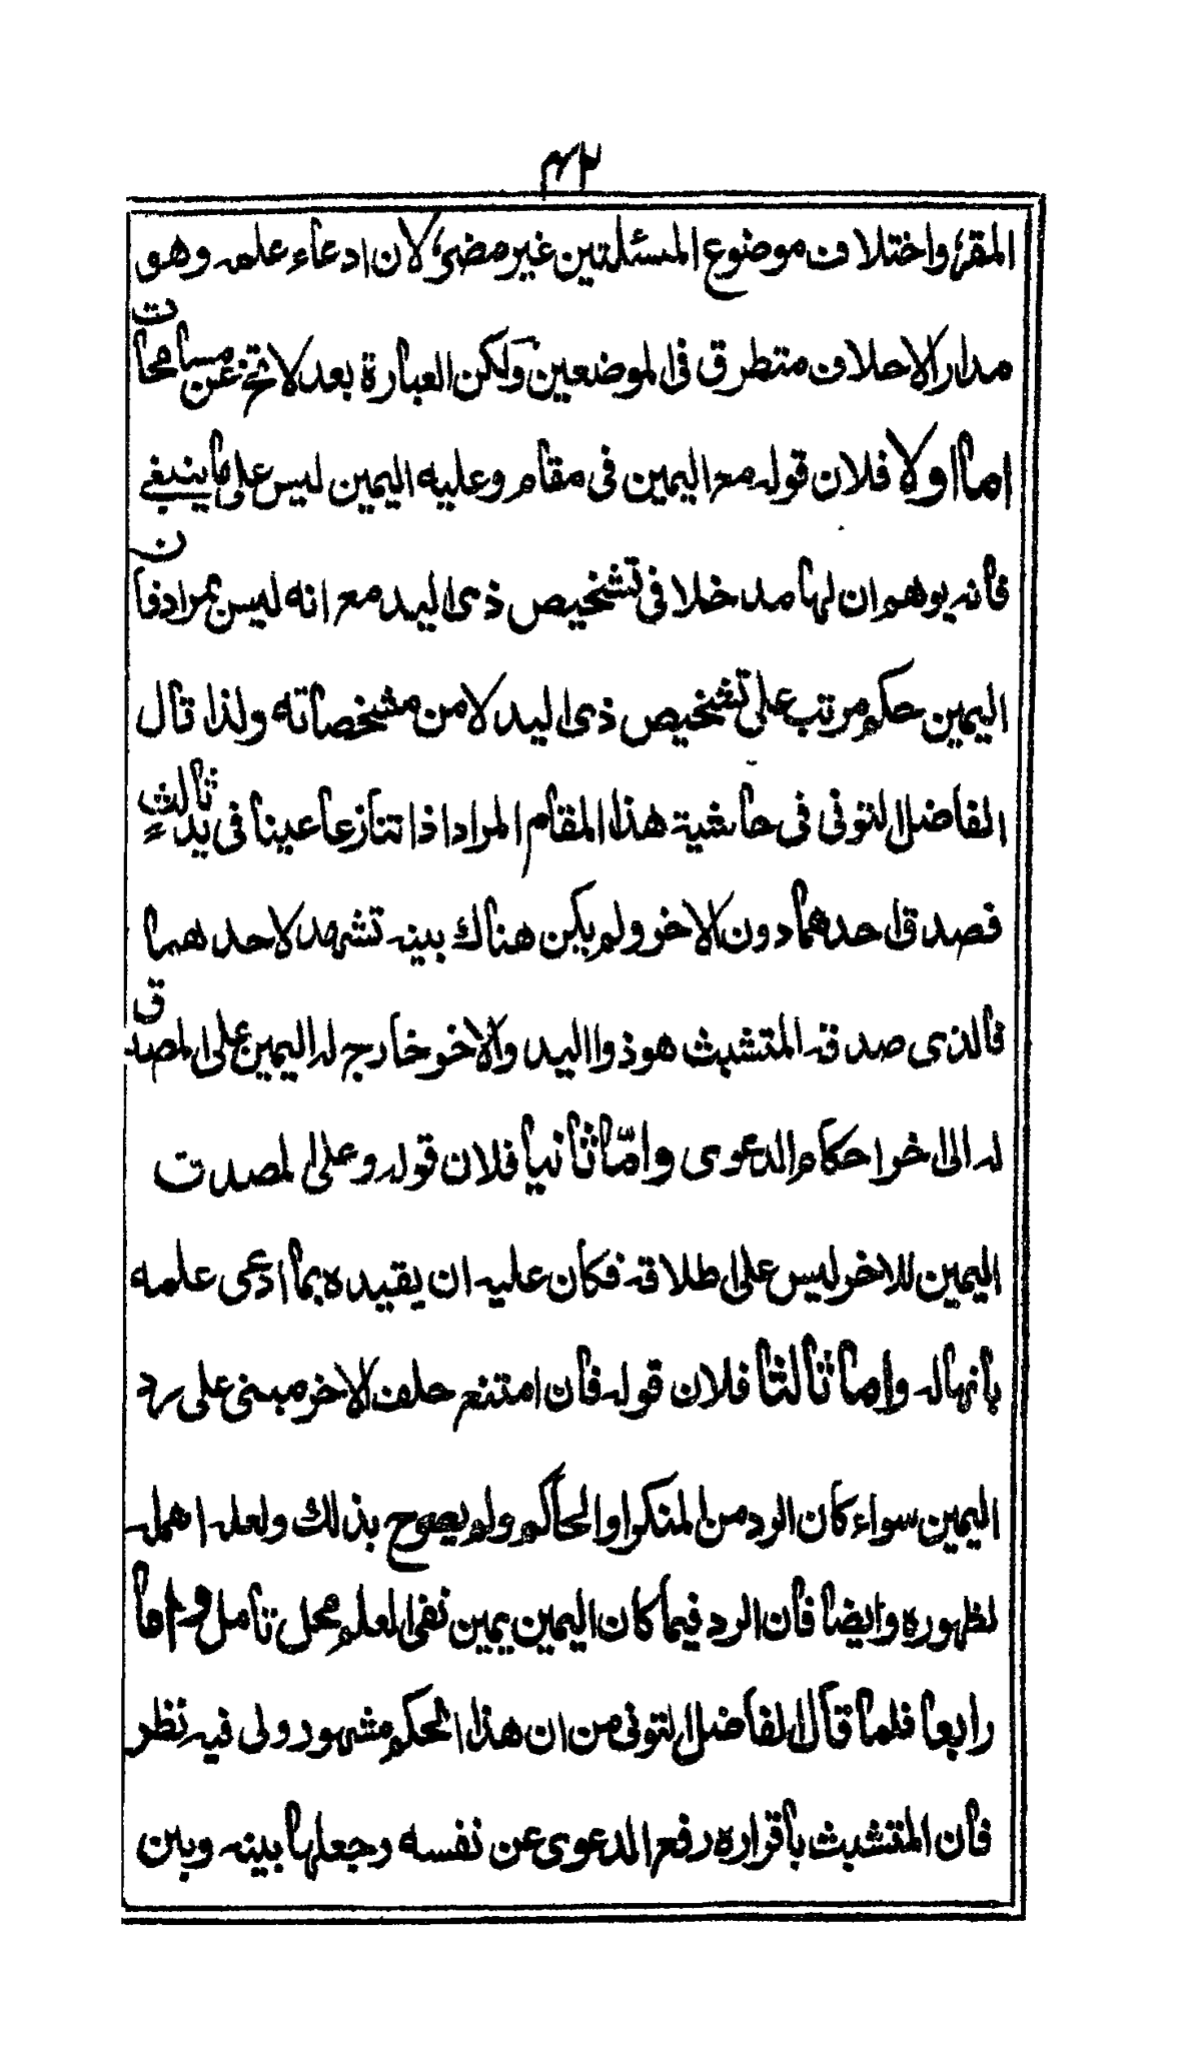 ٤٢
المقر، واختلاف موضوع المسئلتين غير مضر، لان ادعاء علمه وهو
مدار الاحلاف متطرق فى الموضعين ولكن العبارة بعد لا تخ عن مسامحات
اما اولا فلان قوله مع اليمين فى مقام وعليه اليمين ليس على ما ينبغى
فانه يوهم ان لها مدخلا فى تشخيص ذى اليد مع انه ليس بمراد فان
اليمين حكم مرتب على تشخيص ذى اليد لا من مشخصاته ولذا قال
الفاضل التونى فى حاشية هذا المقام المراد اذا تنازعا عينا فى يد ثالث
فصدق احدهما دون الاخر ولم يكن هناك بينه تشهد لاحدهما
فالذى صدقه المتشبث هو ذو اليد والاخر خارج له اليمين على المصدق
له الى اخر احكام الدعوى وامّا ثانيا فلان قوله وعلى المصدق
اليمين للاخر ليس على اطلاقه فكان عليه ان يقيده بما ادعى علمه
بانها له واما ثالثا فلان قوله فان امتنع حلف الاخر مبنى على رد
اليمين سواء كان الرد من المنكر او الحاكم ولم يصرح بذلك ولعله اهمله
لظهوره وايضا فان الرد فيما كان اليمين يمين نفى العلم محل تامل واما
رابعا فلما قال الفاضل التونى من ان هذا الحكم مشهور ولى فيه نظر
فان المتشبث باقراره رفع الدعوى عن نفسه وجعلها بينه وبين